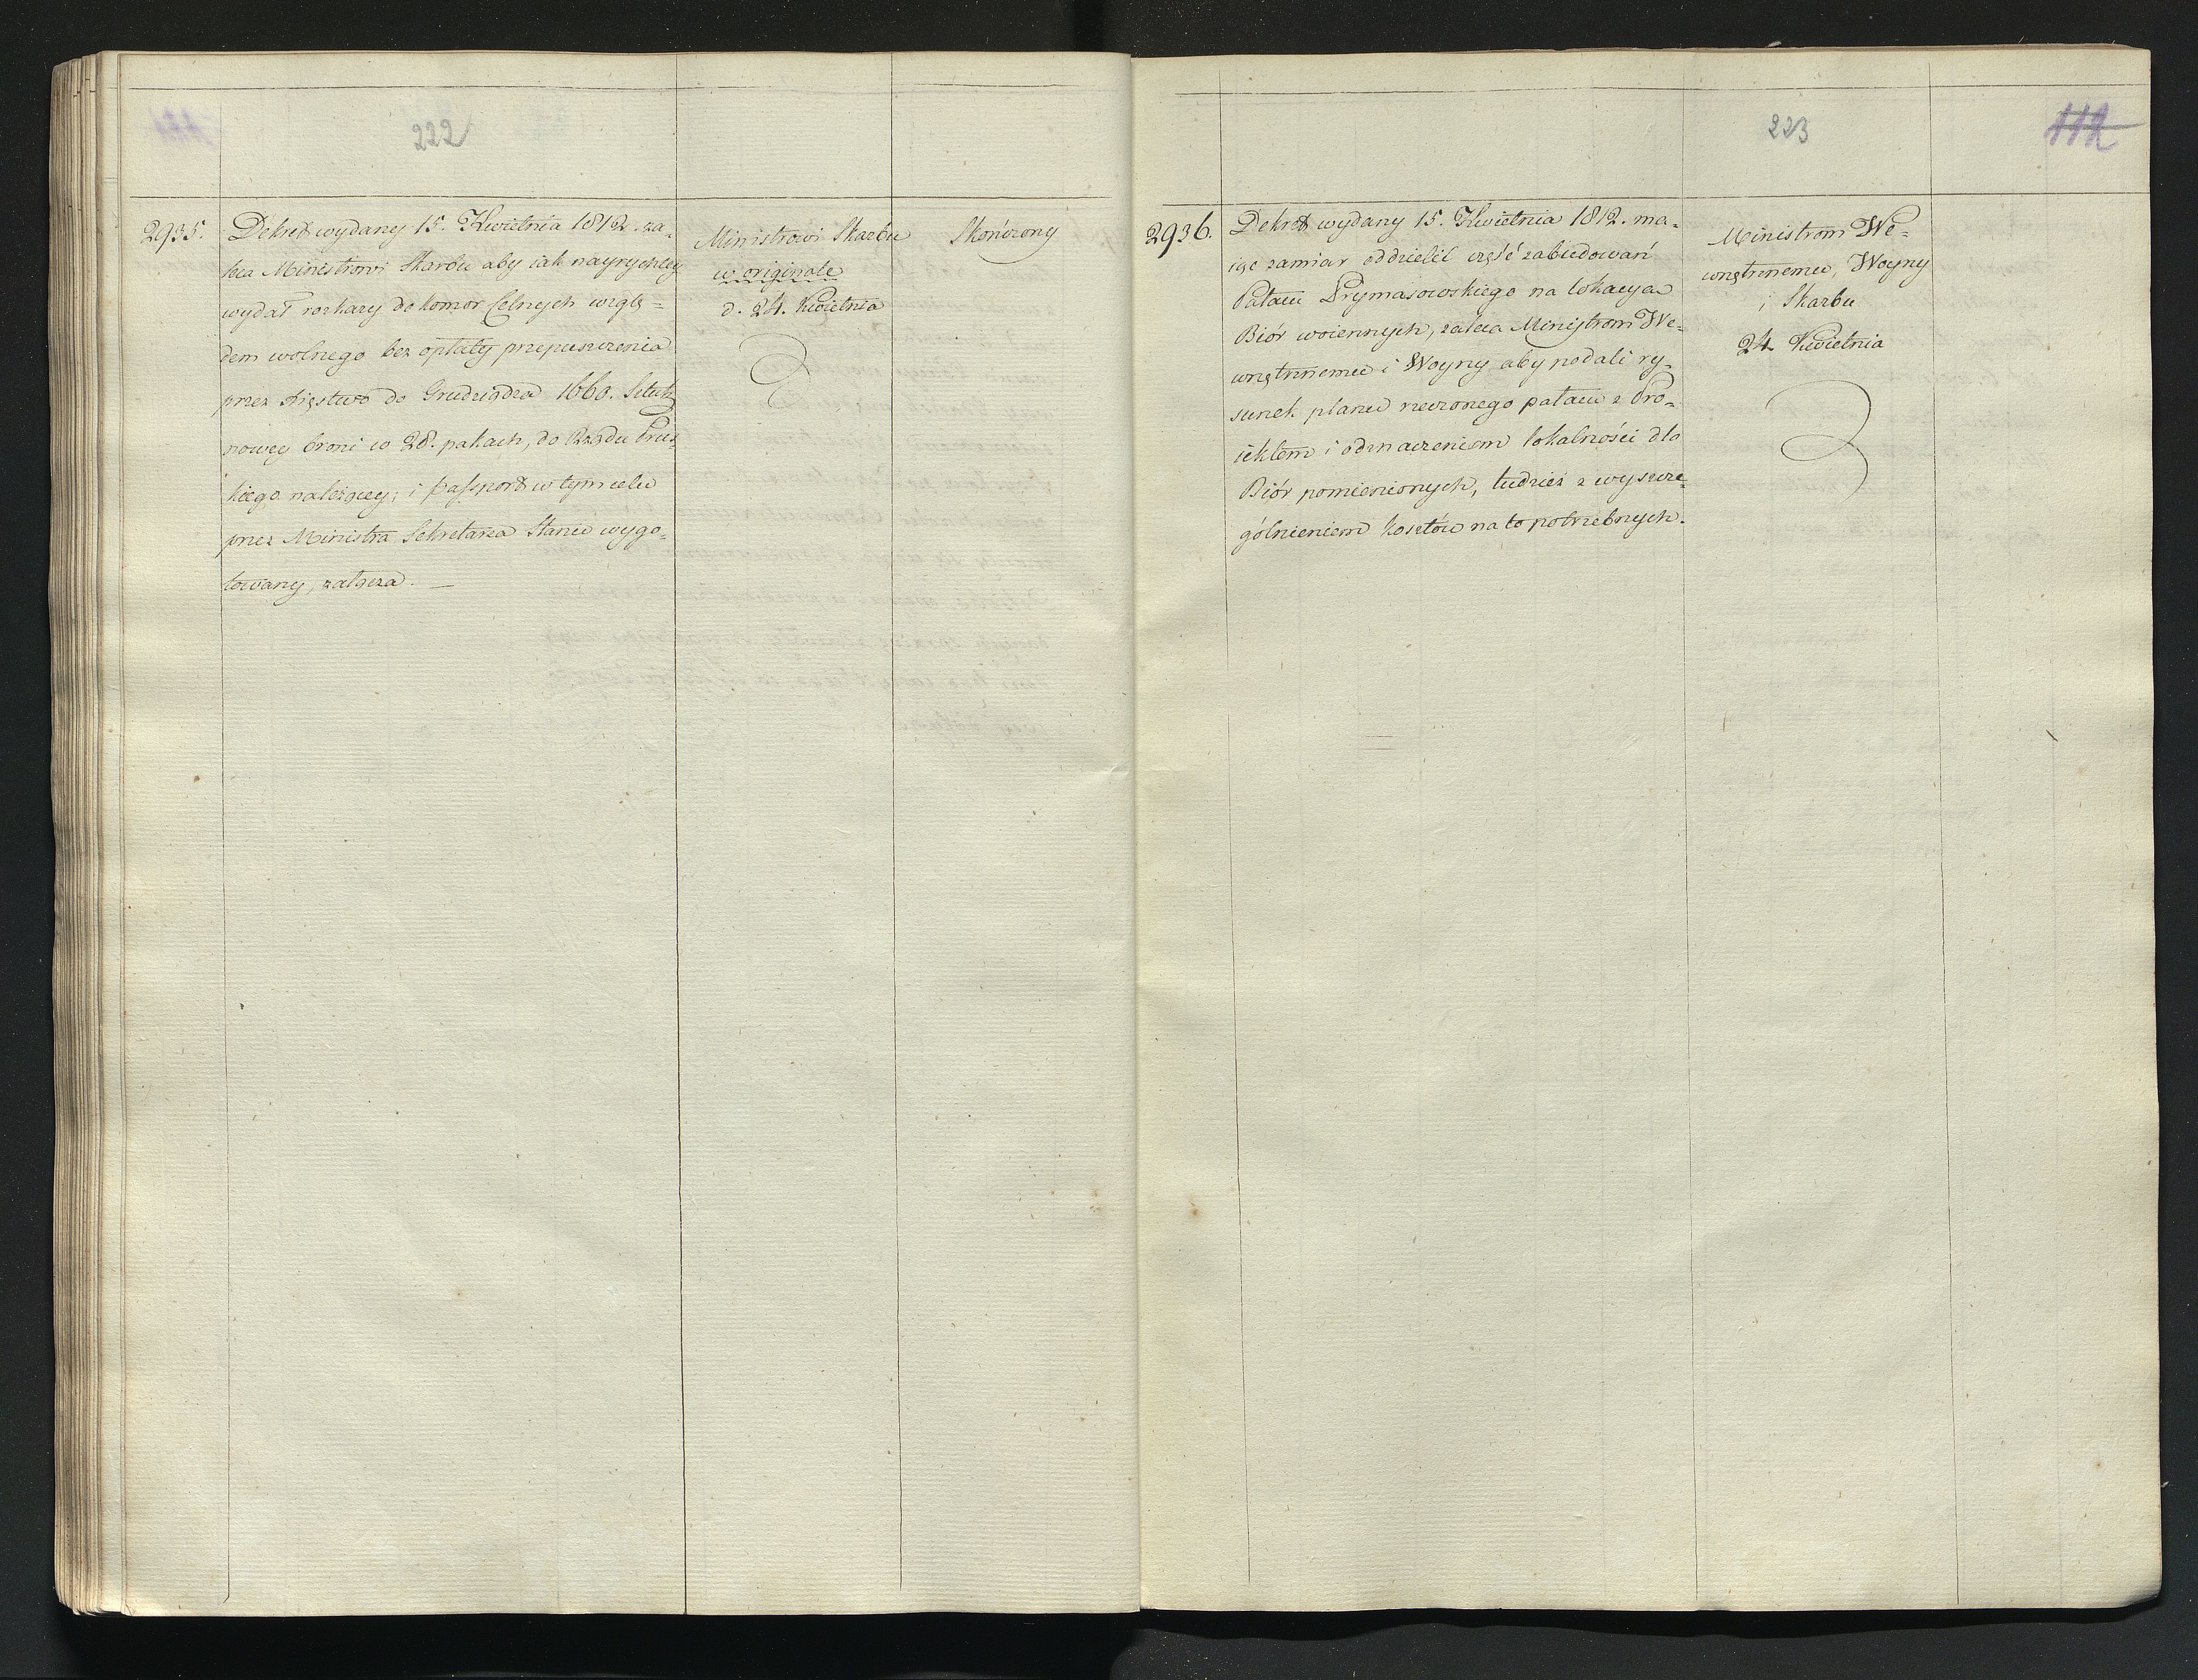 222
2935.
Dekret wydany 15. Kwietnia 1812. za=
leca Ministrowi Skarbu aby iak nayrychley
wydał rozkazy do komor Celnych wzglę=
dem wolnego bez opłaty przepuszczenia
przez Xięstwo do Grudziądza 1660. Sztuk
nowey broni w 28. pakach, do Rządu Prus=
kiego należącey; i passport w tym celu
przez Ministra Sekretarza Stanu wygo=
towany, załącza. —
Ministrowi Skarbu
w originale
d. 24. Kwietnia
Skończony
223
112
2936.
Dekret wydany 15. Kwietnia 1812. ma=
iąc zamiar oddzielić część zabudowań
Pałacu Prymasowskiego na lokacya
Biór woiennych, zaleca Ministrom We=
wnętrznemu i Woyny aby podali ry=
sunek planu rzeczonego pałacu z Pro=
iektem i oznaczeniem lokalności dla
Biór pomienionych, tudzież z wyszcze=
gólnieniem kosztów na to potrzebnych.
Ministrom We=
wnętrznemu, Woyny
i Skarbu
24. Kwietnia